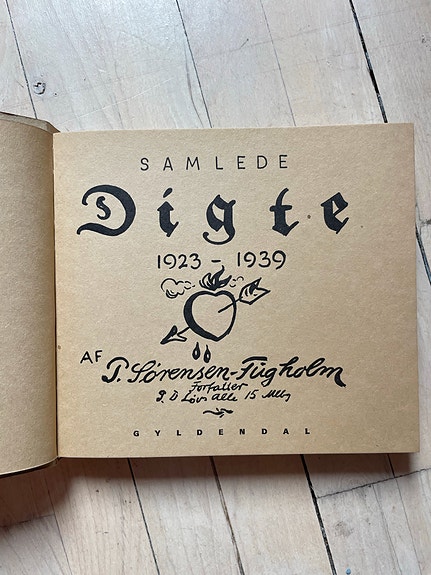 SAMLEDE
Digte
1923 - 1939
AF P. Sørensen-Fugholm
Forfatter
P. D. Løvs Alle 15 Mezz
GYLDENDAL